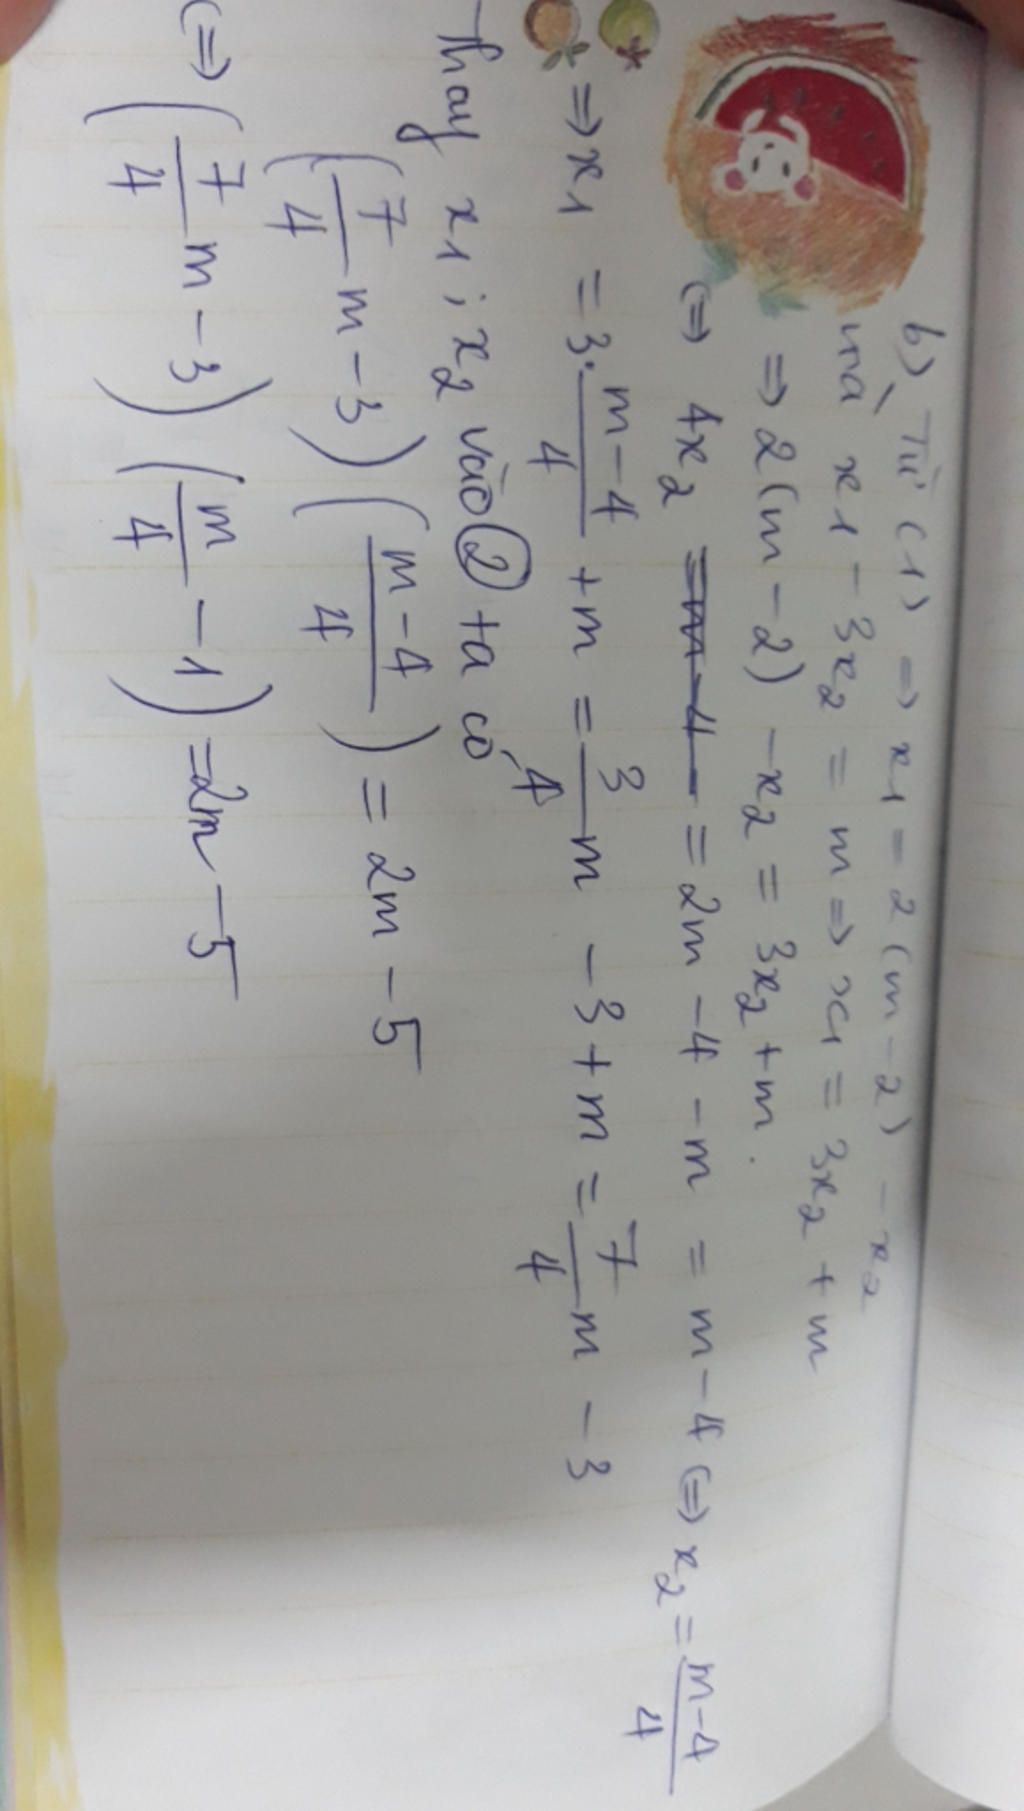 b) Từ (1) => x1 = 2(m-2) - x2
mà x1 - 3x2 = m => x1 = 3x2 + m
=> 2(m-2) - x2 = 3x2 + m.
(=) 4x2 = m-4 = 2m - 4 - m = m - 4 (=) x2 = m-4/4
=> x1 = 3. m-4/4 + m = 3/4 m - 3 + m = 7/4 m - 3
Thay x1 ; x2 vào 2 ta có
(7/4 m - 3) (m-4/4) = 2m - 5
(=) (7/4 m - 3) (m/4 - 1) = 2m - 5